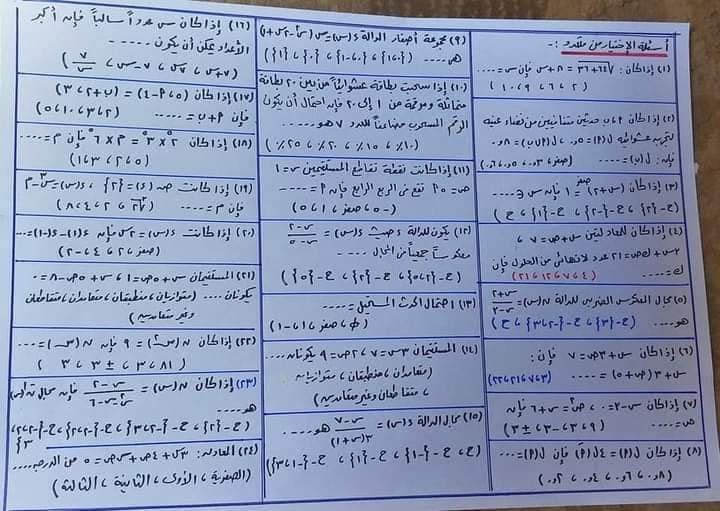 أسئلة الإختيار من متعدد :-
(١) إذا كان : √(٦٤+٣٦) = ٨ + س فإن س = ....
( ٢ ، ٦ ، ٩ ، ١٠ )
(٢) إذا كان ٢ ، ب حدثين متنافيين من فضاء عينة
لتجربة عشوائية
فإن : ل(ب) = ....
(٣) إذا كان (س+٢)صفر = ١ فإن س ∈ ....
(ح-{٢} ، ح-{-٢} ، ح-{١} ، ح)
(٤) إذا كان للمعادلتين س + ص = ٧ ،
٣س + ك ص = ٢١ عدد لا نهائي من الحلول فإن
ك = .... (٤ ، ٧ ، ١٢ ، ٢١)
(٥) مجال المعكوس الضربي للدالة ن(س) = س+٢/س-٣
هو .... (ح-{٣} ، ح-{-٢،٣} ، ح)
(٦) إذا كان س + ٣ص = ٧ فإن :
س + ٣(ص+٥) = .... (٣ ، ٧ ، ٢١ ، ٢٢)
(٧) إذا كان س - ٣ = ٠ ، ص٢ = س + ٦ فإن
ص = .... (٩ ، ٣ ، -٣ ، ±٣)
(٨) إذا كان ل(P) = ٤ل(P) فإن ل(P) = ....
(٨و٠ ، ٦و٠ ، ٤و٠ ، ٢و٠)
(٩) مجموعة أصفار الدالة د(س) = س(س٢-٢س+١)
هي ... ({١،٠} ، {-١،٠} ، {٠} ، {١})
(١٠) إذا سحبت بطاقة عشوائياً من بين ٢٠ بطاقة
متماثلة ومرقمة من ١ إلى ٢٠ فإن احتمال أن يكون
الرقم المسحوب مضاعفاً للعدد ٧ هو....
(١٠٪ ، ١٥٪ ، ٢٠٪ ، ٢٥٪)
(١١) إذا كانت نقطة تقاطع المستقيمين س = ١
ص = P تقع في الربع الرابع فإن P = ....
(-٥ ، صفر ، ١ ، ٥)
(١٢) يكون للدالة د حيث د(س) = س-٢/س-٥
معكوساً جمعياً في المجال ....
(ح-{٢،٥} ، ح-{٢} ، ح-{٥})
(١٣) احتمال الحدث المستحيل = ....
(∅ ، صفر ، ١ ، -١)
(١٤) المستقيمان ٣س = ٧ ، ٢ص = ٩ يكونان ...
(متعامدان ، منطبقان ، متوازيان
، متقاطعان وغير متعامدين)
(١٥) مجال الدالة د(س) = س-٧/٣(س+١) هو ....
(ح ، ح-{-١} ، ح-{١} ، ح-{-١،٣})
(١٦) إذا كان س عدداً سالباً فإن أكبر
الأعداد يمكن أن يكون ....
(٧+س ، ٧س ، ٧-س ، ٧/س)
(١٧) إذا كان (٥، P-٤) = (ب+٢، ٣)
فإن P + ب = .... (١٠ ، ٢ ، ٣ ، ٥)
(١٨) إذا كان ٢٥ × ٣٥ = م × ٦٤ فإن م = ....
(٥ ، ٢ ، ٣ ، ١)
(١٩) إذا كانت ص(د) = {٢} ، د(س) = س٣ - م
فإن م = ....
(٢٠) إذا كانت د(س) = ٢س فإن د(١) - د(-١) = ...
(صفر ، ٢ ، ٤ ، -٢)
(٢١) المستقيمان س + ٥ص = ١ ، س + ٥ص - ٨ = ٠
يكونان .... (متوازيان ، منطبقان ، متعامدان ، متقاطعان
وغير متعامدين)
(٢٢) إذا كان ن(س٢) = ٩ فإن ن(س) = ....
(٨١ ، ٣ ، ±٣ ، ٣)
(٢٣) إذا كان ن(س) = س-٢/س٢-س-٦ فإن مجال ن-١(س)
هو ....
(٢٤) المعادلة : ٣س + ٤ص + س ص = ٥ من الدرجة ...
(الصفرية ، الأولى ، الثانية ، الثالثة)